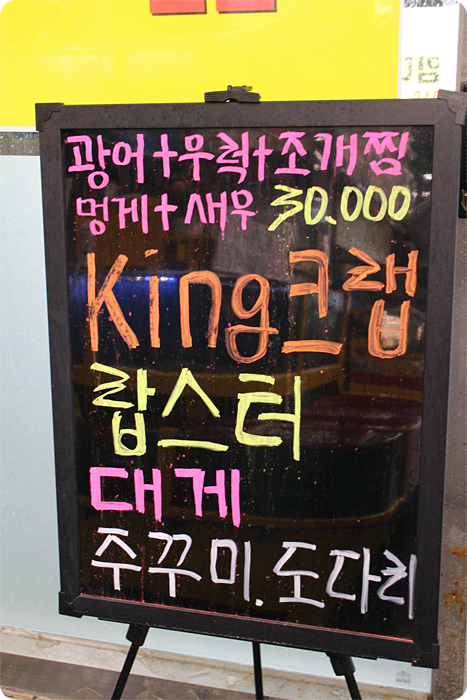 광어+우럭+조개찜
멍게+새우 30.000
King크랩
랍스터
대게
주꾸미.도다리